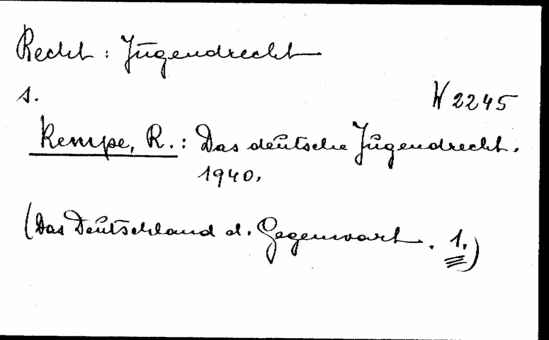 Recht : Jugendrecht
s.
W 2245
Kempe, R.: Das deutsche Jugendrecht.
1940.
(Das Deutschland d. Gegenwart. 1.)